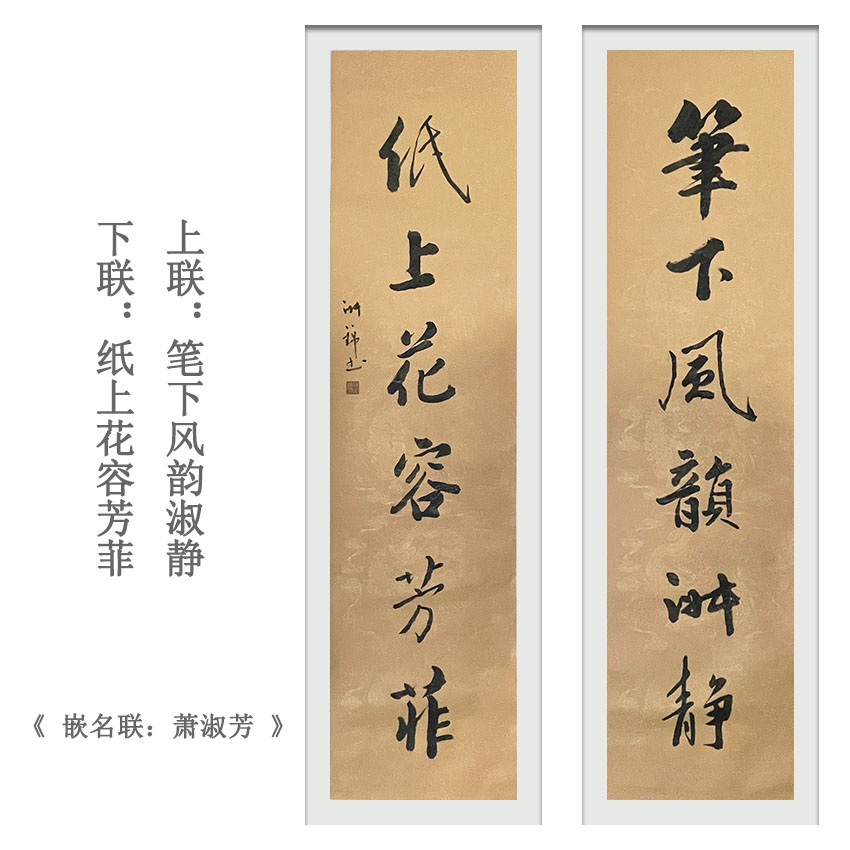 筆下風韻淑静
紙上花容芳菲
上联：笔下风韵淑静
下联：纸上花容芳菲
《 嵌名联：萧淑芳 》